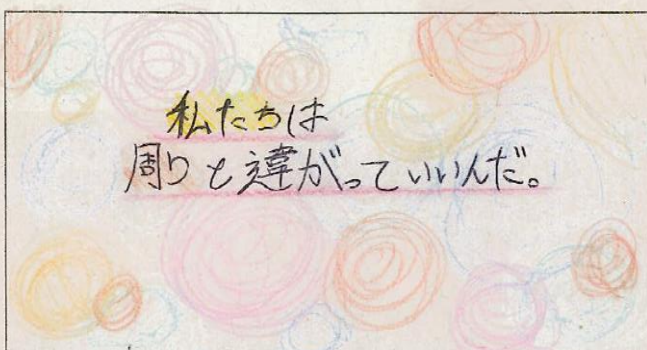 私たちは
周りと違がっていいんだ。